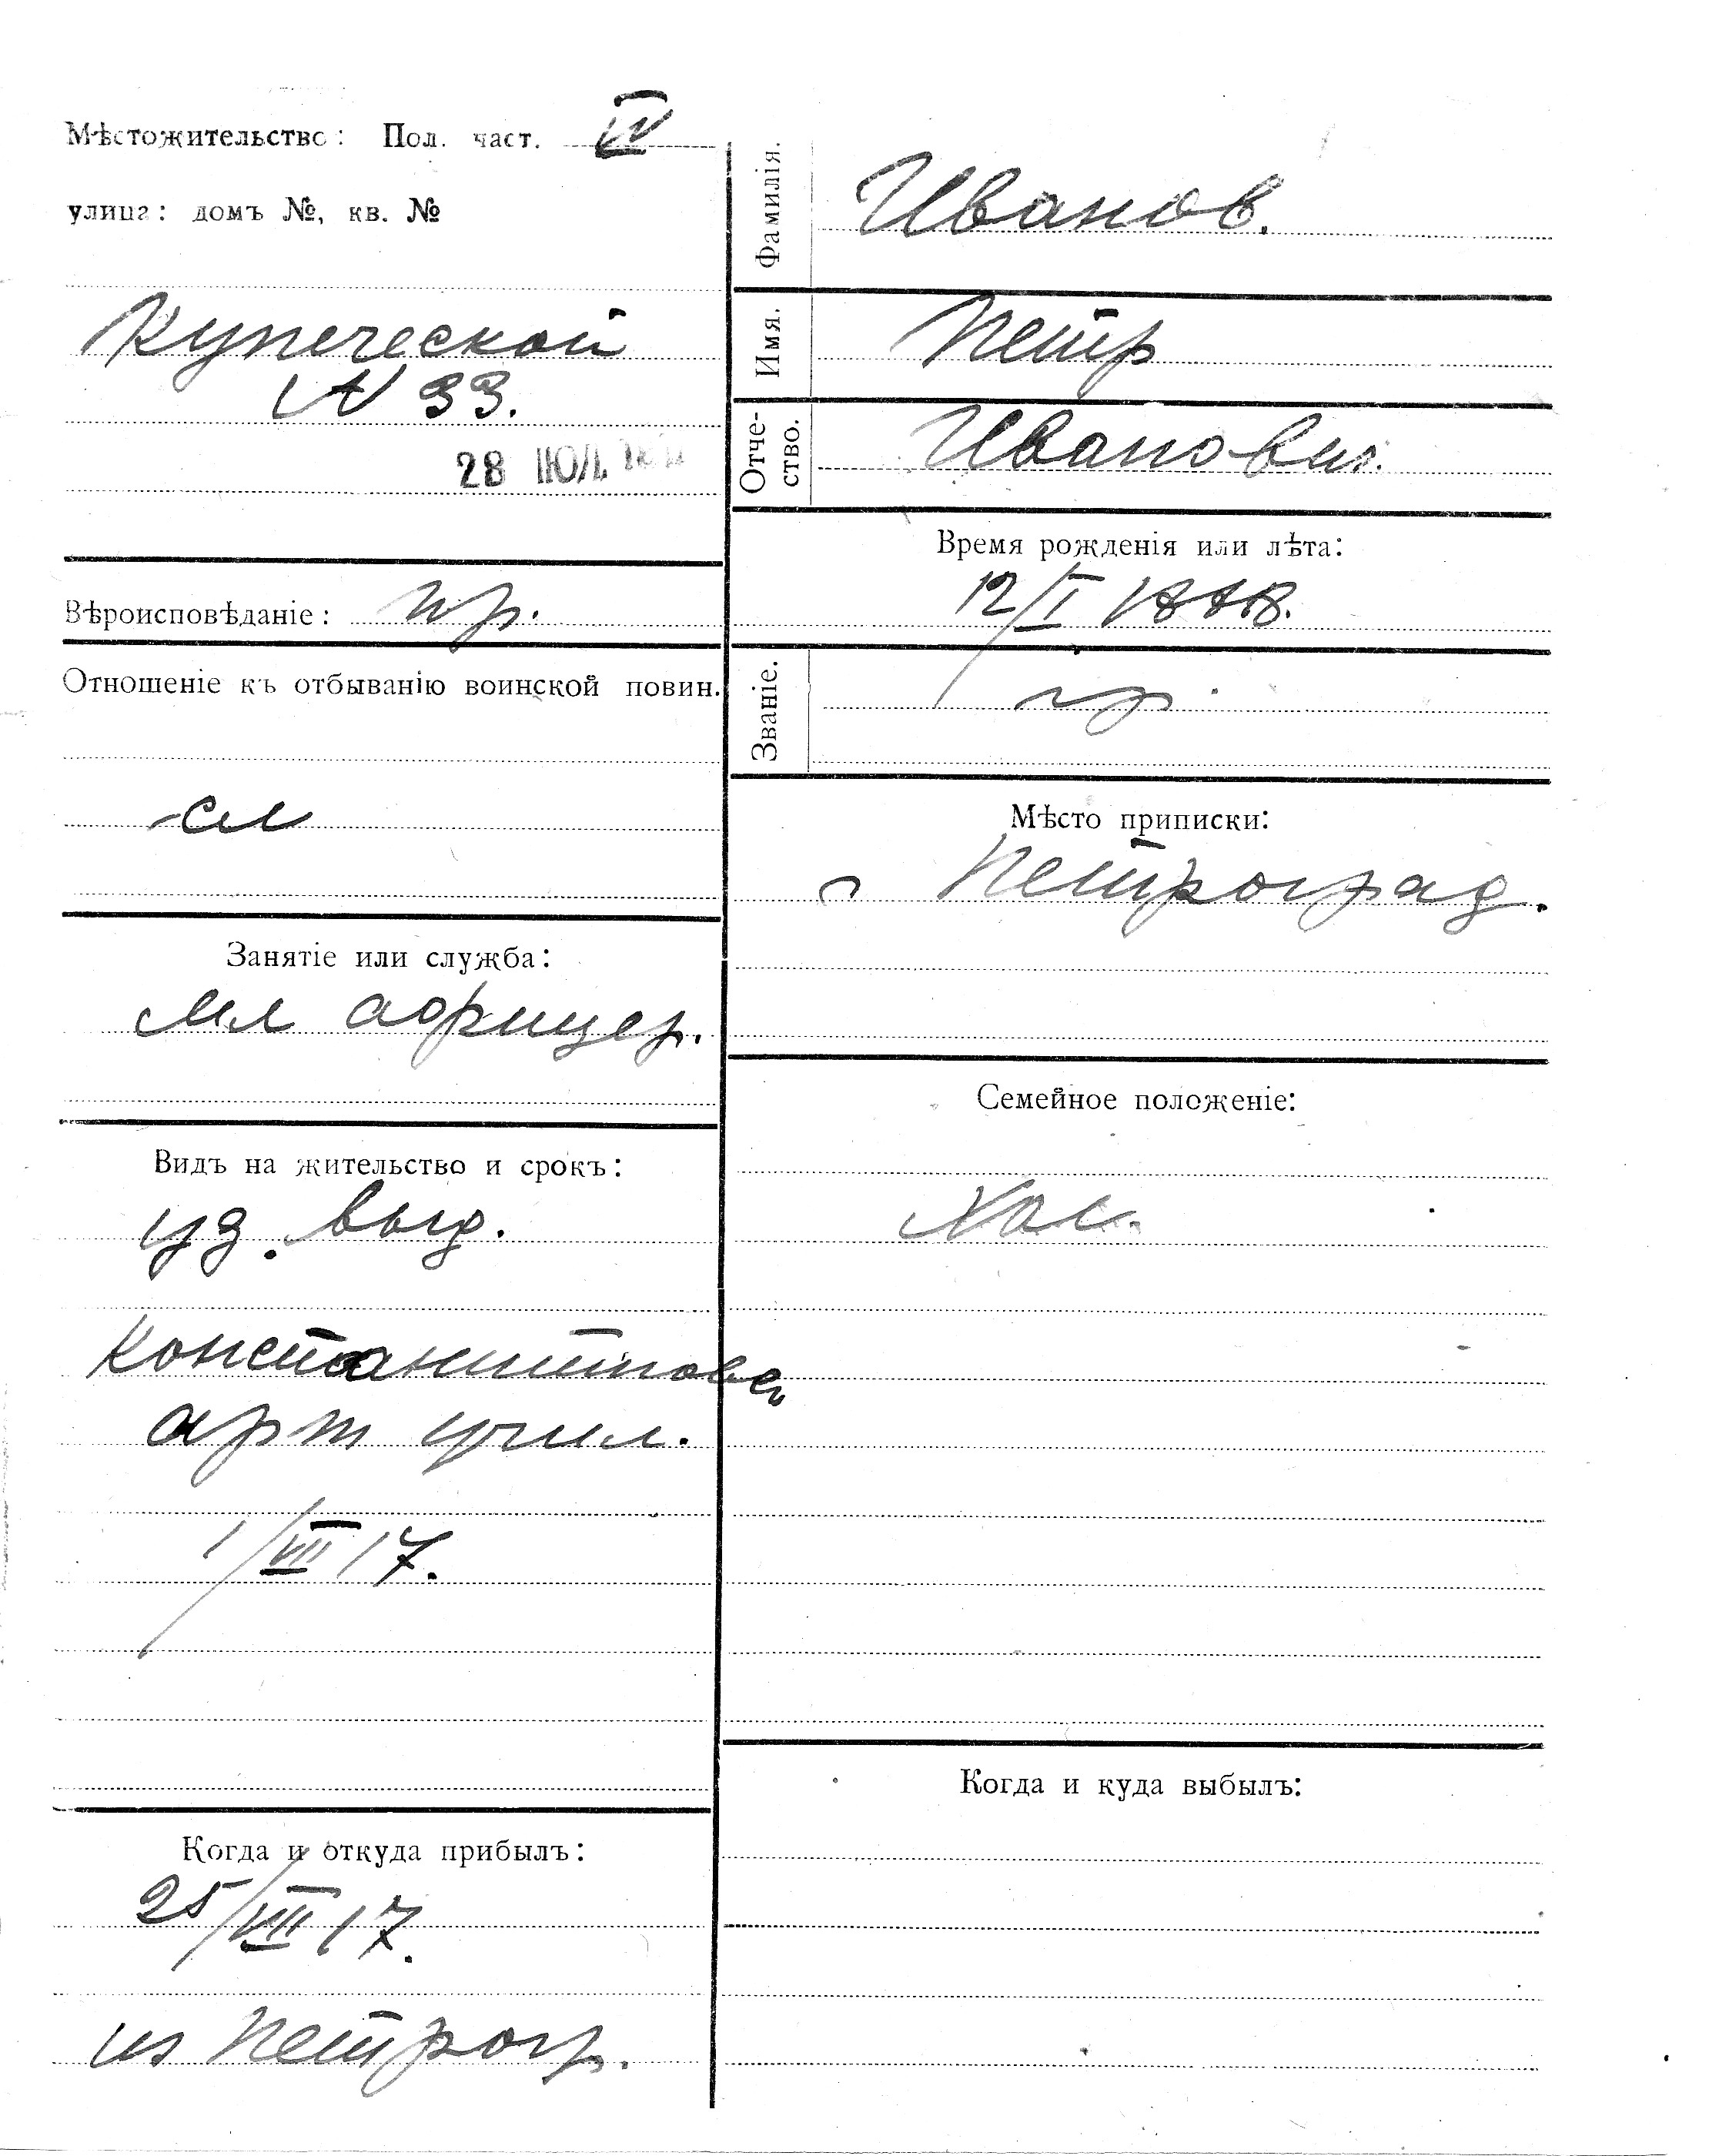 Мѣстожительство: Пол. част. IV
улица: домъ №, кв. №
Купеческой
N 33.
28 ІЮЛ.
Вѣроисповѣданіе: пр.
Отношеніе къ отбыванію воинской повин.
сл
Занятіе или служба:
мл офицер.
Видъ на жительство и срокъ:
уд. выд.
Константиновск
арт учил.
1/VII 17.
Когда и откуда прибылъ:
25/VII 17.
из Петрогр.
Фамилія. Иванов.
Имя. Петр
Отче-
ство. Иванович.
Время рожденія или лѣта:
12/I 1888.
Званіе. гр.
Мѣсто приписки:
г Петроград.
Семейное положеніе:
Хол.
Когда и куда выбылъ: